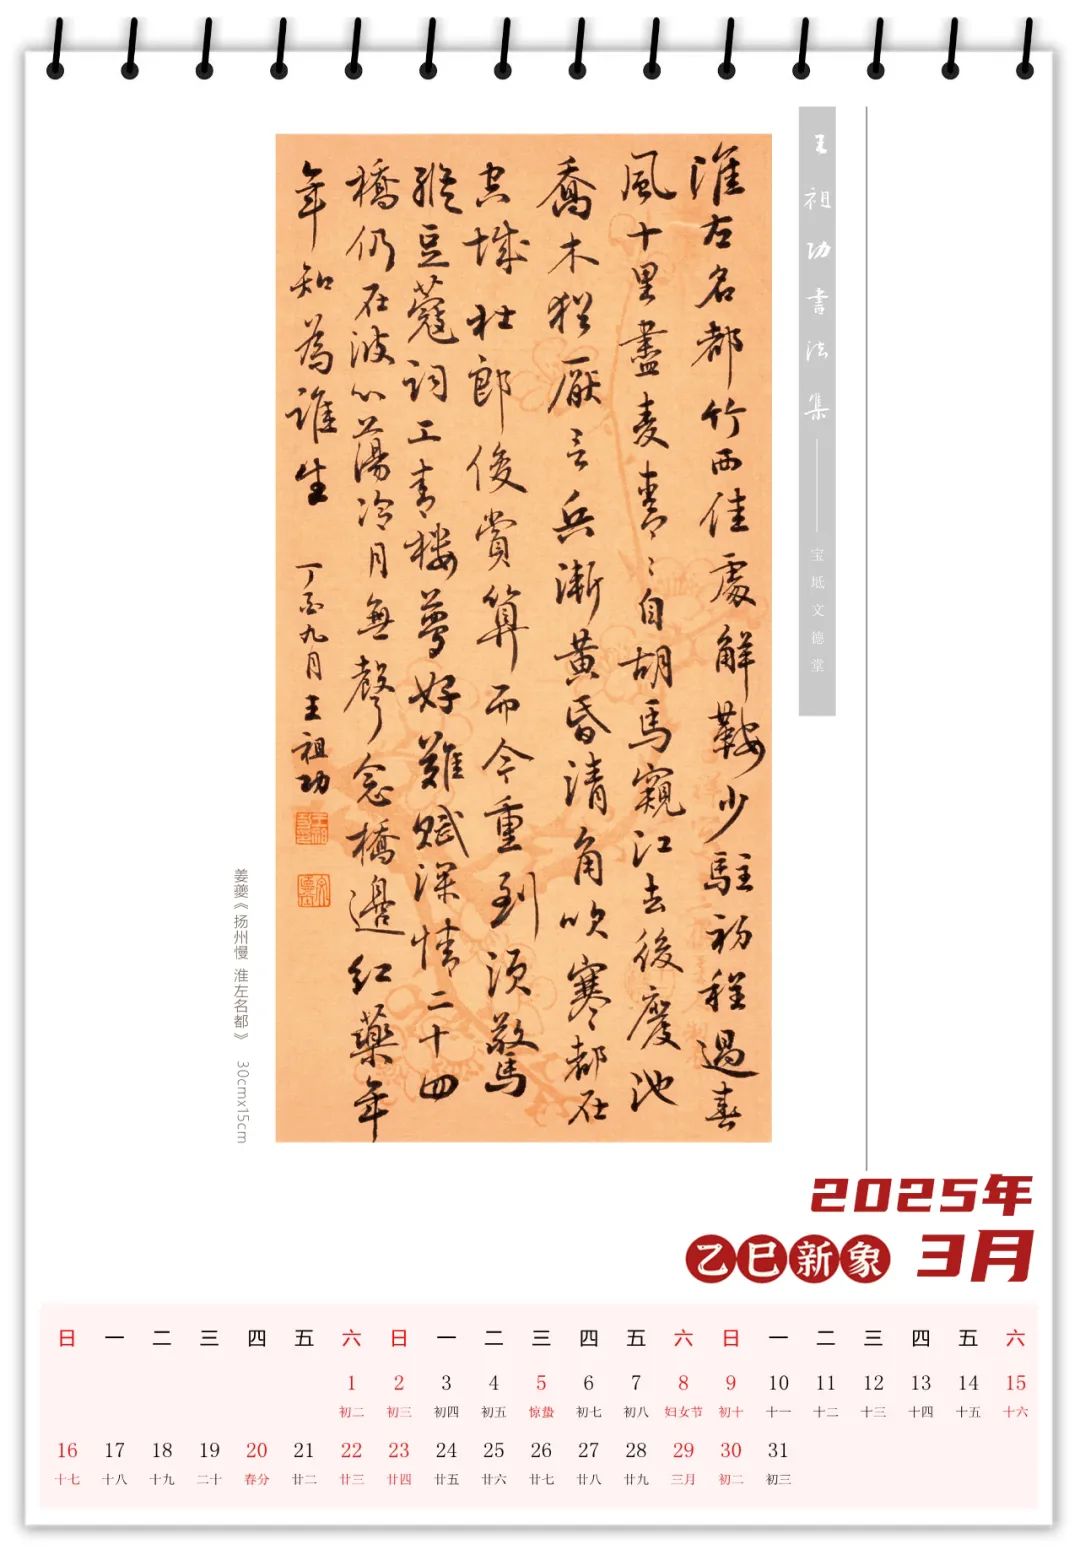 王祖功書法集
宝坻文德堂
淮左名都竹西佳處解鞍少駐初程過春
風十里盡麦青〻自胡馬窺江去後廢池
喬木猶厭言兵漸黄昏清角吹寒都在
空城杜郎俊賞算而今重到須驚
縱豆蔻詞工青楼夢好難賦深情二十四
橋仍在波心蕩冷月無聲念橋邊紅藥年
年知為誰生 丁酉九月王祖功
姜夔《扬州慢 淮左名都》 30cmx15cm
2025年
乙巳新象 3月
日 一 二 三 四 五 六 日 一 二 三 四 五 六 日 一 二 三 四 五 六
1 2 3 4 5 6 7 8 9 10 11 12 13 14 15
初二 初三 初四 初五 惊蛰 初七 初八 妇女节 初十 十一 十二 十三 十四 十五 十六
16 17 18 19 20 21 22 23 24 25 26 27 28 29 30 31
十七 十八 十九 二十 春分 廿二 廿三 廿四 廿五 廿六 廿七 廿八 廿九 三月 初二 初三